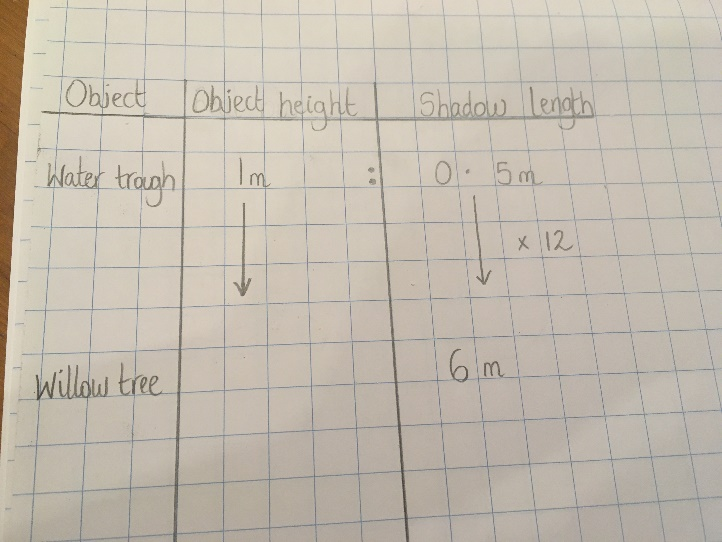 Object Object height Shadow length
Water trough 1m : 0.5m
× 12
Willow tree 6m